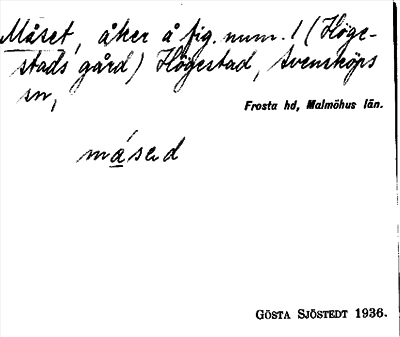 Måset, åker å fig. num. 1 (Höge-
stads gård) Högestad, Svensköps
sn,
Frosta hd, Malmöhus län.
måsed
GÖSTA SJÖSTEDT 1936.